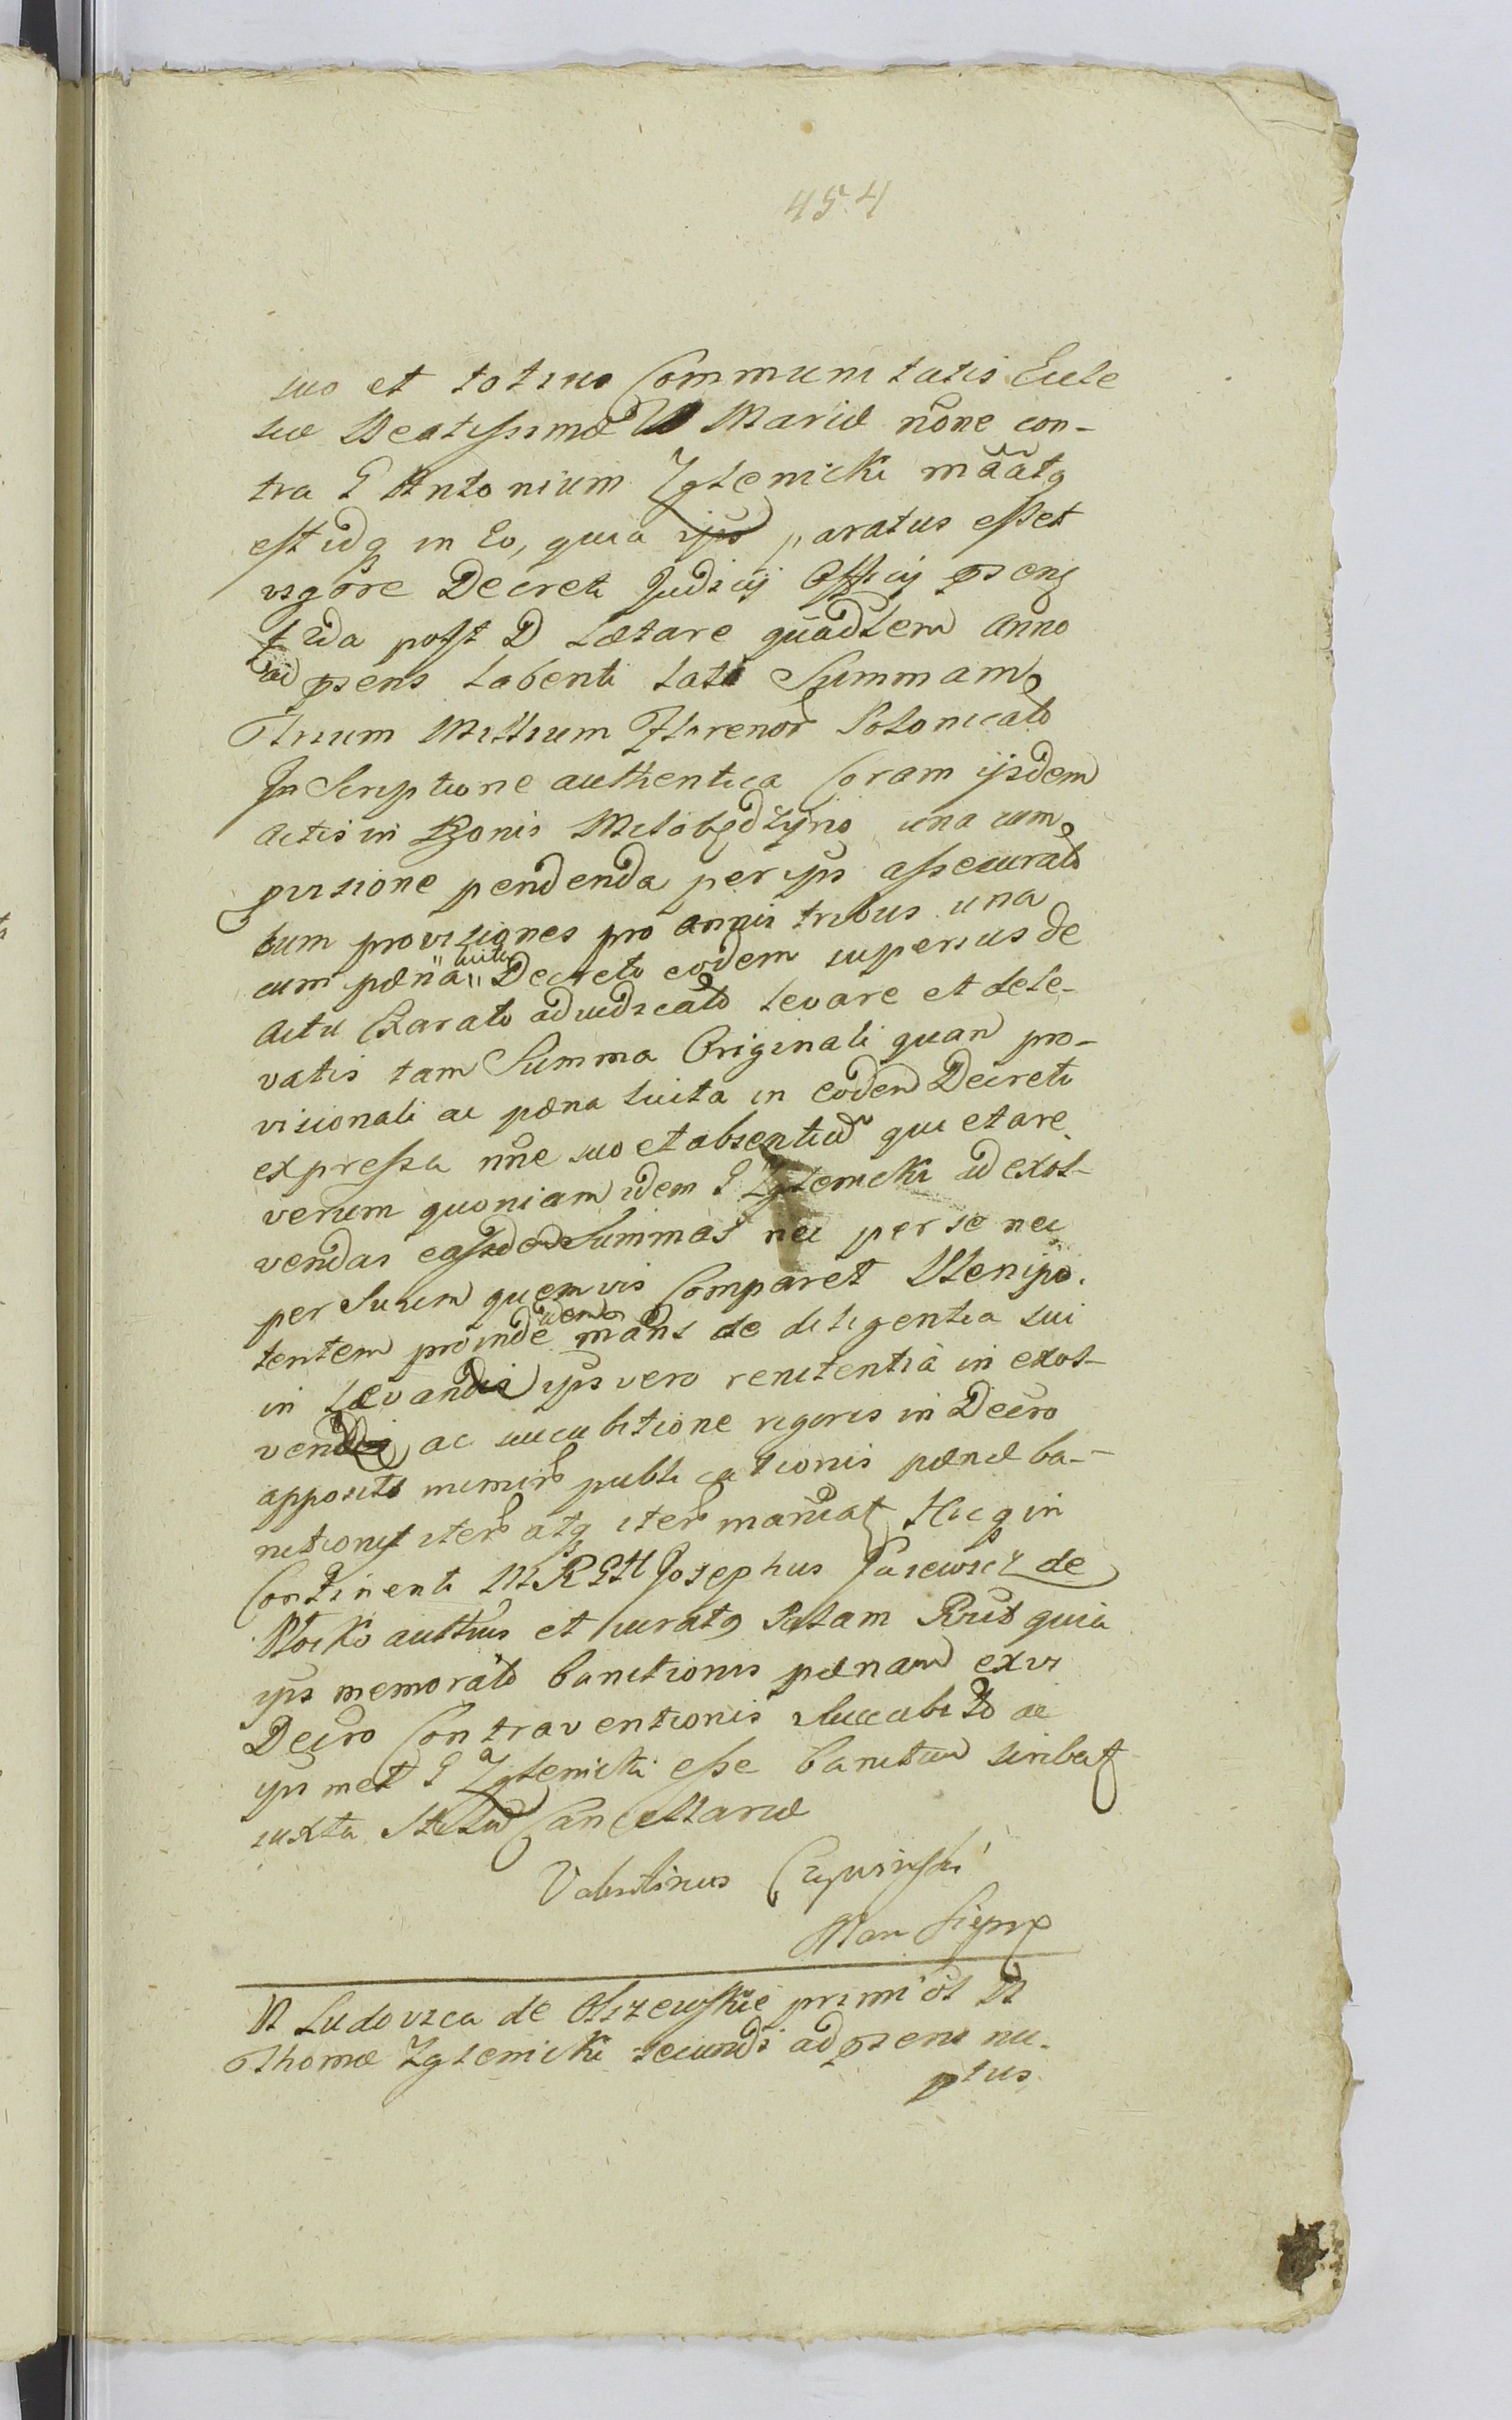 454
suo et totius Communitatis Eccle
siæ Beatissimæ V Mariæ nõne con-
tra G Antonium Zglenicki mããtq
est idq in Eo, quia ips paratus esset
vigore Decreti Judicij Officij psenς
f 2da post D Lætare quadlem Anno
ad psens labenti lati Summam
Trium Millium Florenor Polonicalo
Inscriptione authentica Coram ijsdem
actis in Bonis Miłobędzyno una cum
pvisione pendenda per ips assecurato
tum provisiones pro annis tribus una
cum pœna luita Decreto eodem superius de
actu Exarato adiudicato levare et dele-
vatis tam Summa Originali quam pro-
visionali ac pæna luita in eodem Decreto
expressa nñe suo et absentiu quietare
verum quoniam idem G Zglenicki ad exol-
vendas easdem Summas nec per se nec
per Suum quemvis Comparet Plenipo.
tentem proinde idem mãns de diligentia sui
in Levandis ips vero renitentia in exol-
vendis ac succubitione rigoris in Decro
apposito nimir publicationis pœnæ ba-
nitionis iter atq iter maniat Hicq in
Continenti M R G H Josephus Jasiewicz de
Płocko authus et iuratq Palam Rnit quia
ips memorato banitionis pænam ex vi
Decro Contraventionis Succubito ac
ips met G Zglenicki esse banitum scribat
iuxta Stilum Cancellariæ
Valentinus Czywinski
M Ludovica de Olszewskie primi ol M
Thomæ Zglenicki secundi ad psens nu-
ptus